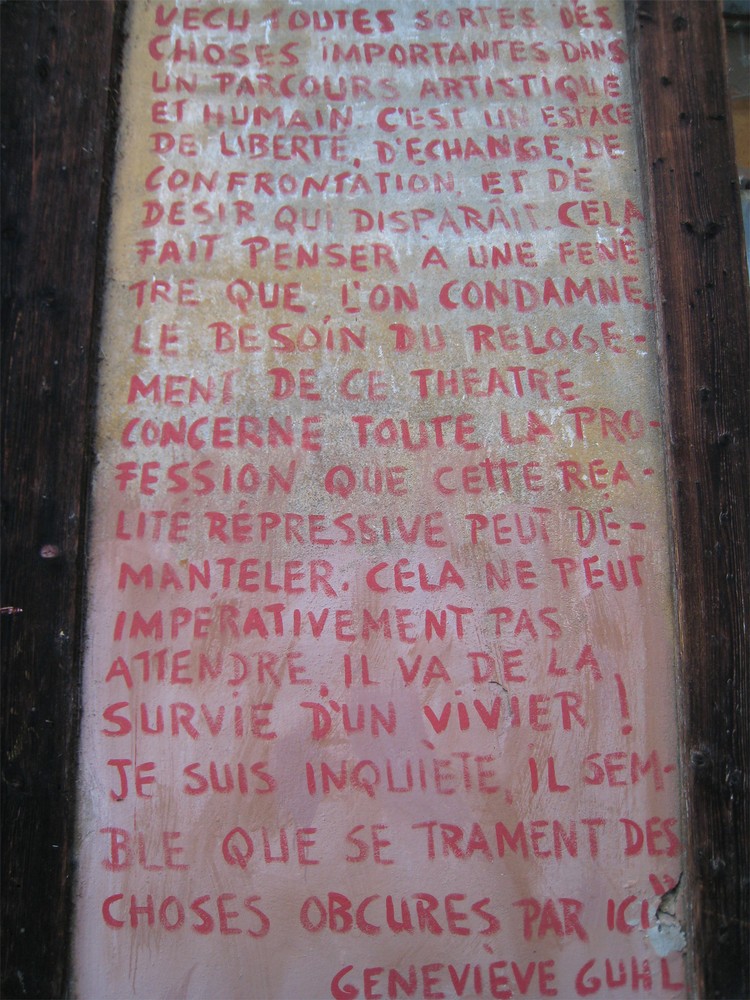 VÉCU TOUTES SORTES DES
CHOSES IMPORTANTES DANS
UN PARCOURS ARTISTIQUE
ET HUMAIN. C'EST UN ESPACE
DE LIBERTÉ, D'ÉCHANGE, DE
CONFRONTATION, ET DE
DÉSIR QUI DISPARAÎT. CELA
FAIT PENSER À UNE FENÊ-
TRE QUE L'ON CONDAMNE.
LE BESOIN DU RELOGE-
MENT DE CE THEATRE
CONCERNE TOUTE LA PRO-
FESSION QUE CETTE RÉA-
LITÉ RÉPRESSIVE PEUT DÉ-
MANTELER. CELA NE PEUT
IMPÉRATIVEMENT PAS
ATTENDRE, IL VA DE LA
SURVIE D'UN VIVIER !
JE SUIS INQUIÈTE, IL SEM-
BLE QUE SE TRAMENT DES
CHOSES OBCURES PAR ICI"
GENEVIÈVE GUHL